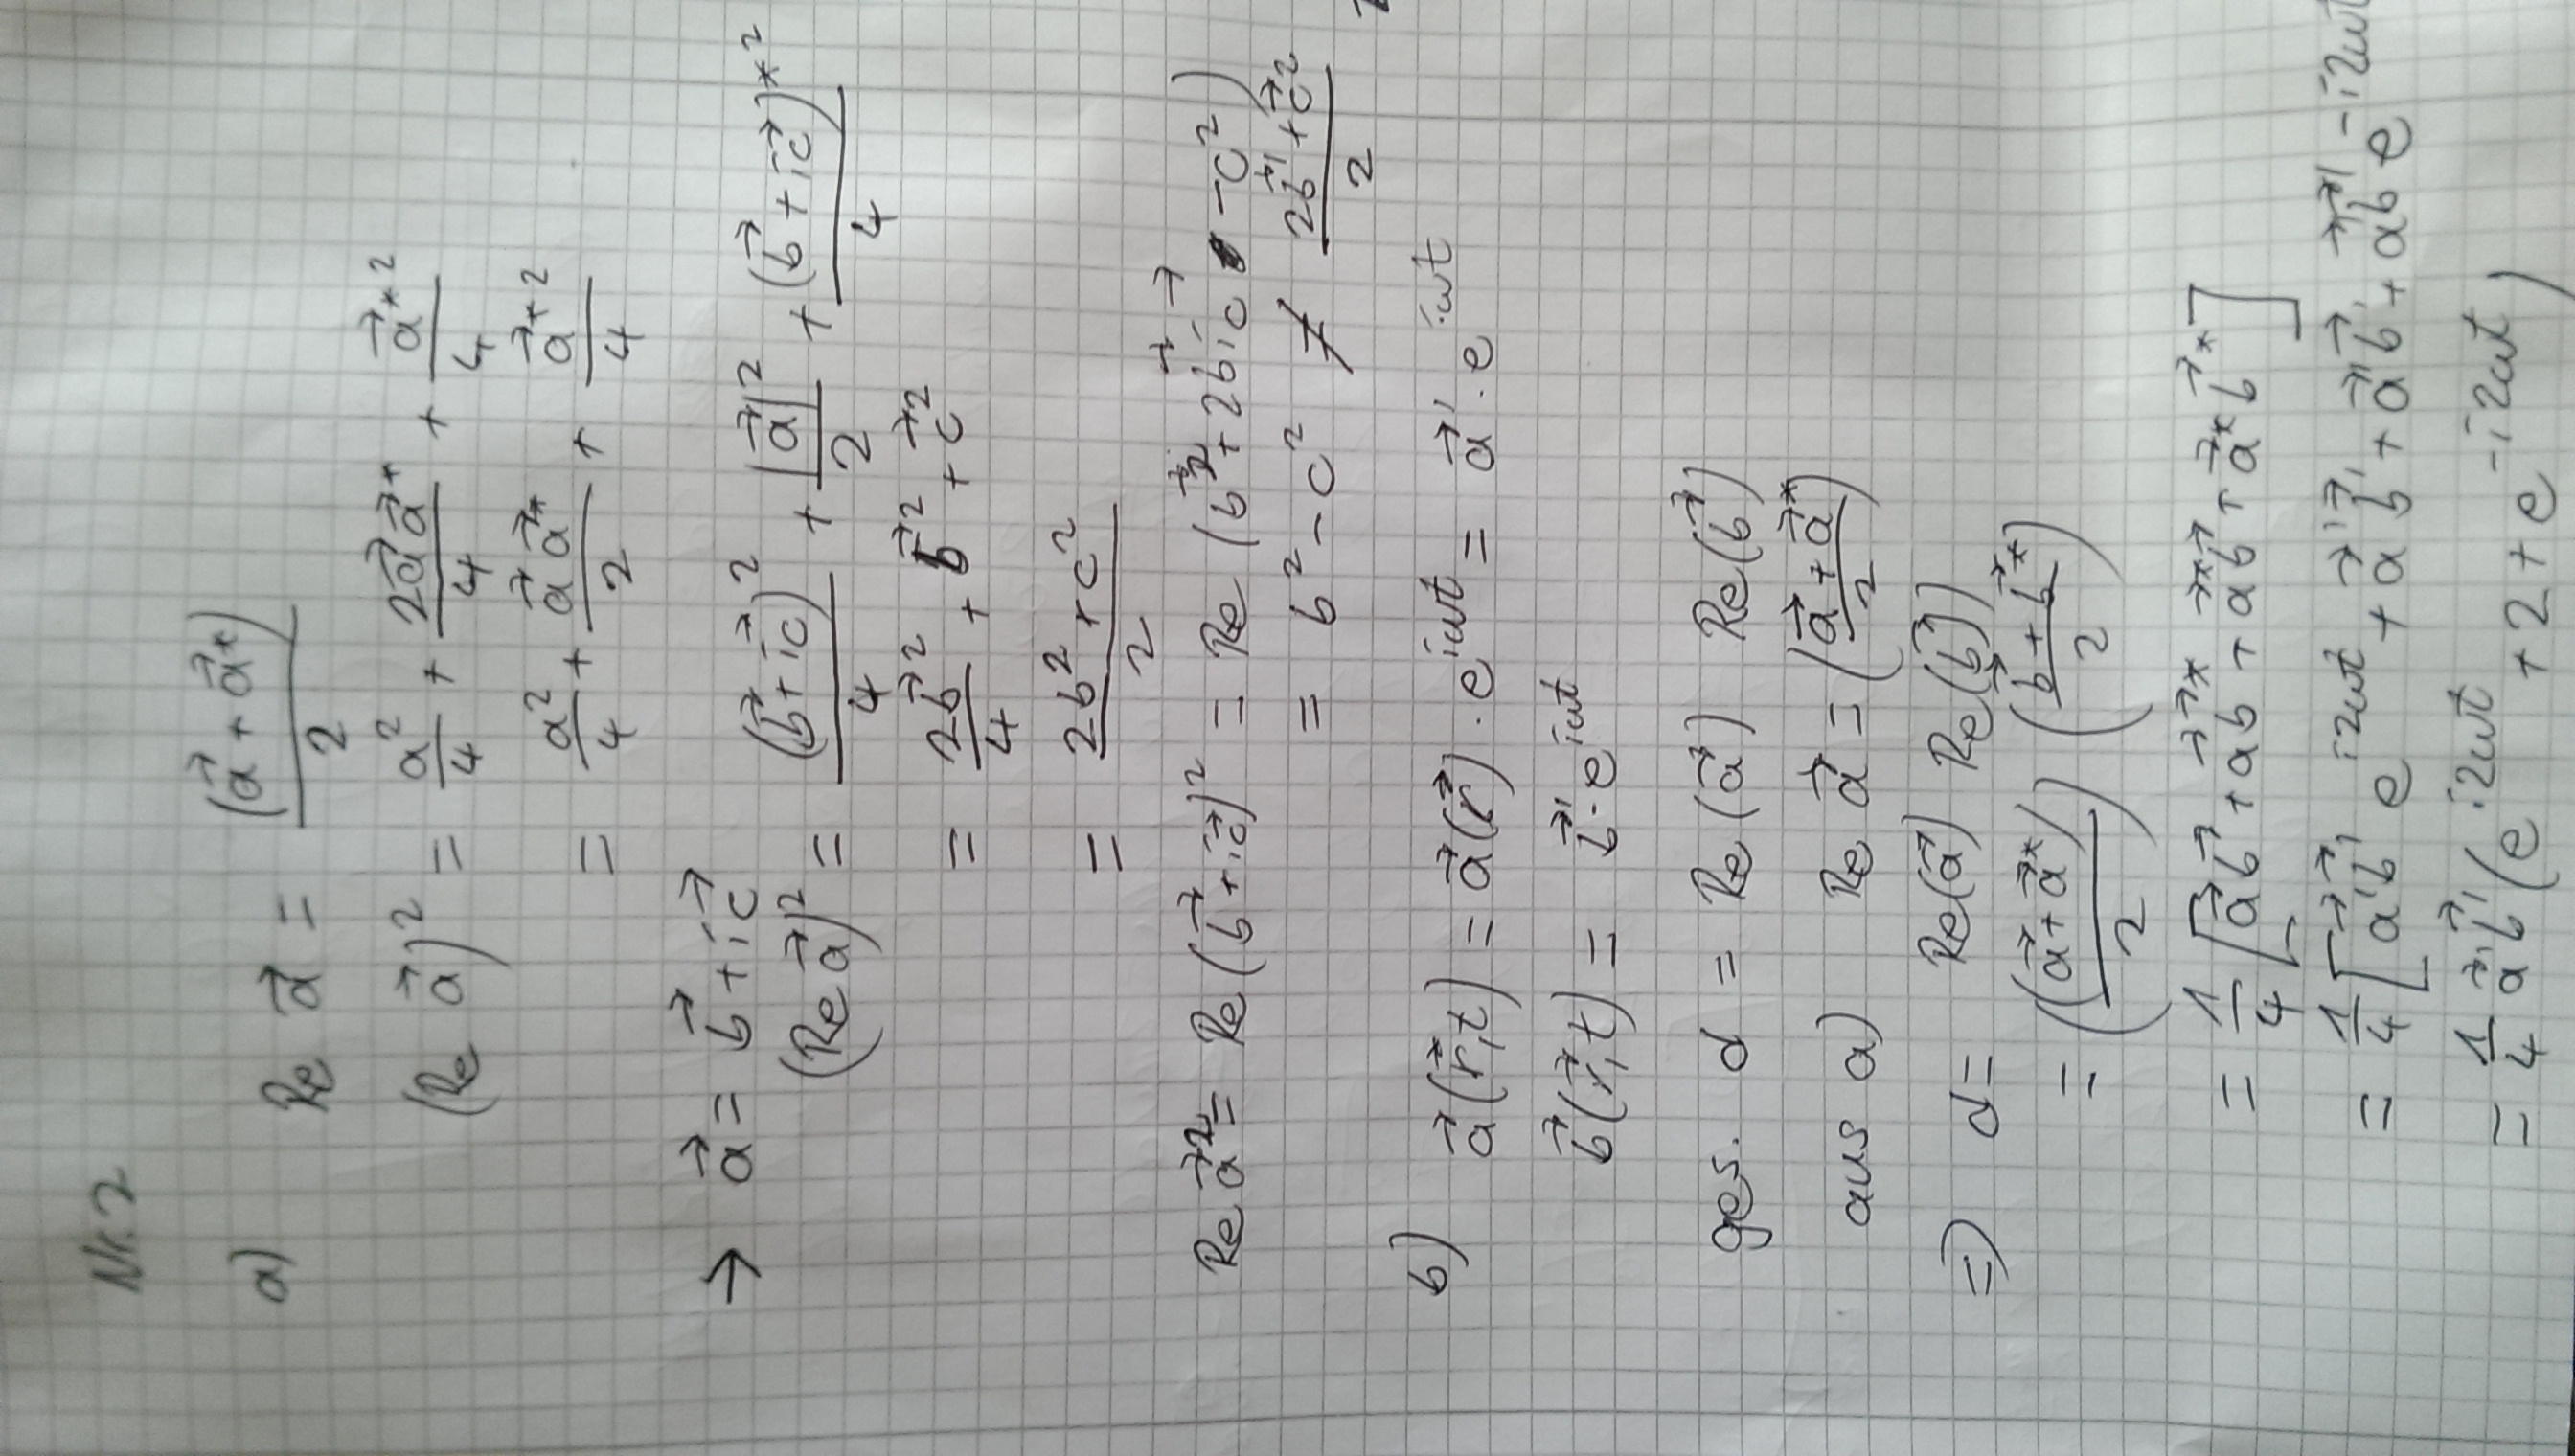 Nr. 2
a) Re a⃗ = (a⃗ + a⃗*)/2
(Re a⃗)² = a²/4 + 2a⃗a⃗*/4 + a⃗*²/4
= a²/4 + a⃗a⃗*/2 + a⃗*²/4
→ a⃗ = b⃗ + ic⃗
(Re a⃗)² = (b⃗+ic⃗)²/4 + |a⃗|²/2 + (b⃗+ic⃗)*²/4
= 2b⃗²/4 + b⃗² + c⃗²
= (2b² + c²)/2
Re a⃗² = Re (b⃗+ic⃗)² = Re (b⃗² + 2b⃗ic⃗ - c²)
= b² - c² ≠ (2b⃗² + c⃗²)/2
b) a⃗(r⃗,t) = a⃗(r⃗) · e^{iωt} = a⃗' · e^{iωt}
b⃗(r⃗,t) = b⃗' · e^{iωt}
ges. d = Re(a⃗) Re(b⃗)
aus a) Re a⃗ = ((a⃗ + a⃗*)/2)
⇒ d = Re(a⃗) Re(b⃗)
= ((a⃗ + a⃗*)/2) ((b⃗ + b⃗*)/2)
= 1/4 [a⃗b⃗ + a⃗b⃗* + a⃗*b⃗ + a⃗*b⃗*]
= 1/4 [a⃗'b⃗' e^{i2ωt} + a⃗'b⃗' + a⃗'b⃗' + a⃗'b⃗' e^{-i2ωt}
= 1/4 a⃗'b⃗' (e^{i2ωt} + 2 + e^{-i2ωt})